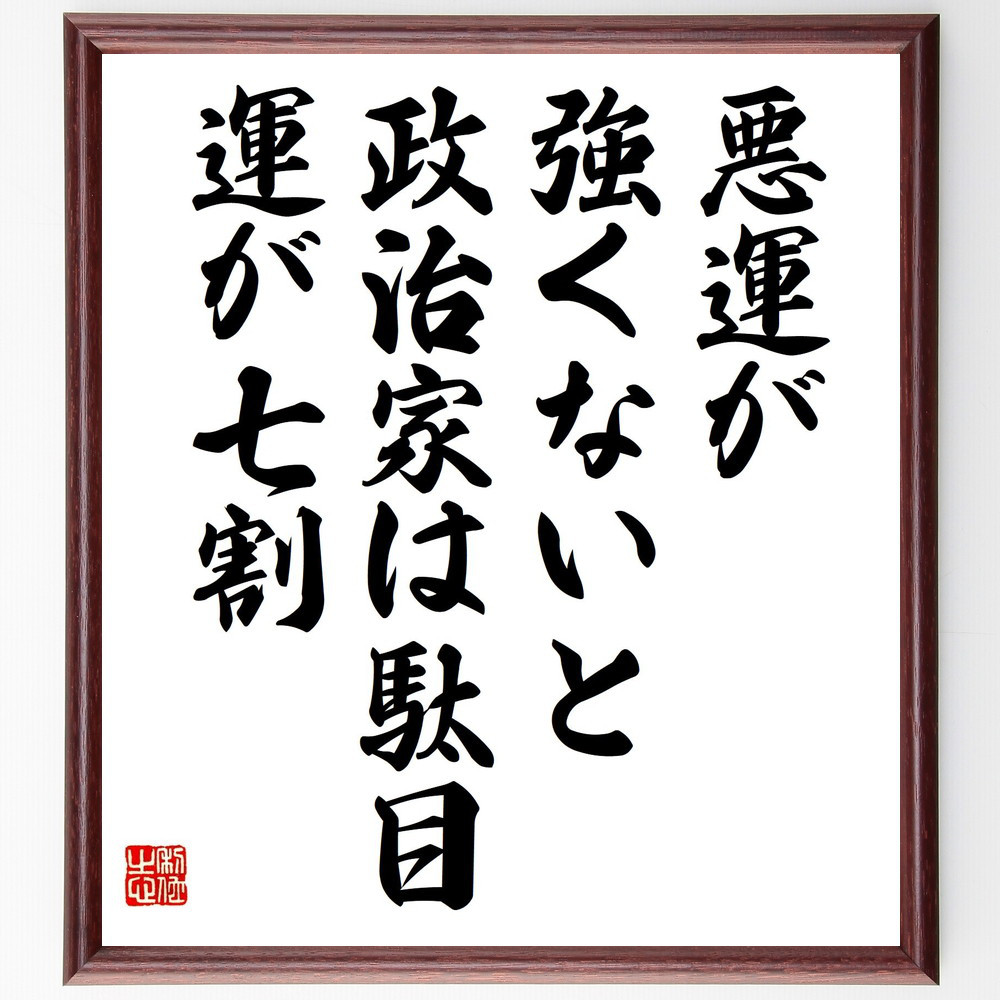 悪運が
強くないと
政治家は駄目
運が七割